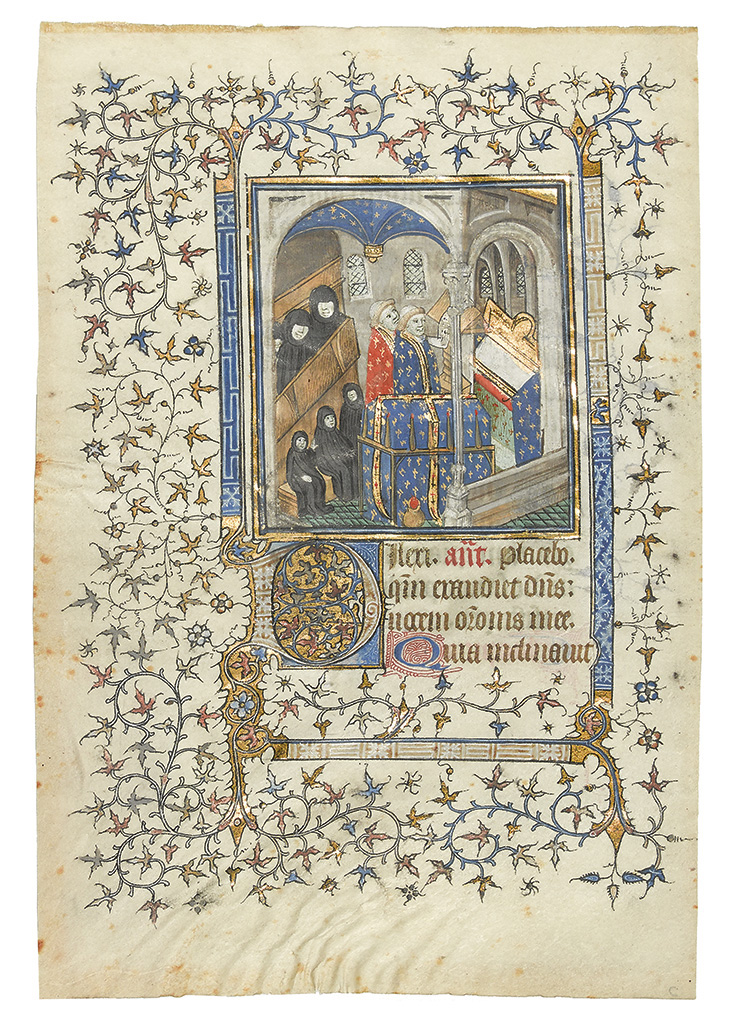 Dilexi. añt. Placebo.
qm̄ exaudiet dn̄s:
uocem or̄onis mee.
Quia inclinauit